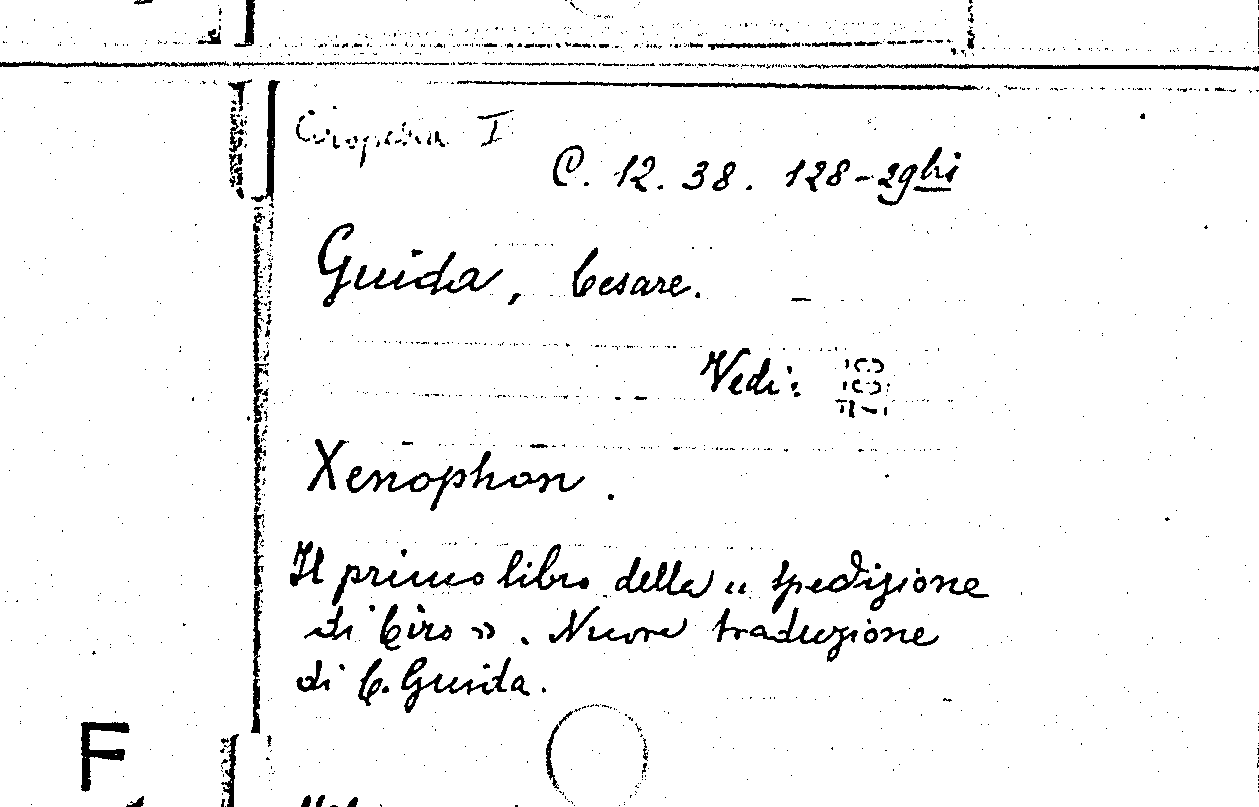 Ciropedia I
C. 12. 38. 128-29 bis
Guida, Cesare.
Vedi:
Xenophon.
Il primo libro della « Spedizione
di Ciro ». Nuova traduzione
di C. Guida.
F